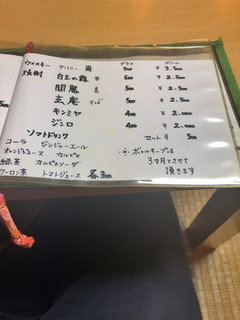 グラス ボトル
ウィスキー サントリー 角 500 ¥3.500
焼酎 白玉の露 芋 500 ¥2.500
閻魔 麦 500 ¥2.500
玄庵 そば 500 ¥2.500
キンミヤ 400 ¥2.000
ジンロ 400 ¥2.000
ソフトドリンク セット ¥500
コーラ ジンジャーエール
オレンジジュース カルピス ※ ボトルキープは
緑茶 カルピスソーダ 3ヶ月とさせて
ウーロン茶 トマトジュース 各300 頂きます